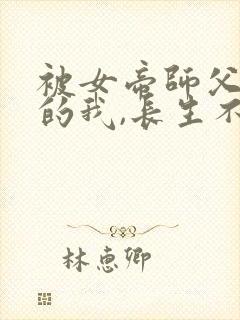 被女帝師父
的我,長生不
林惠卿